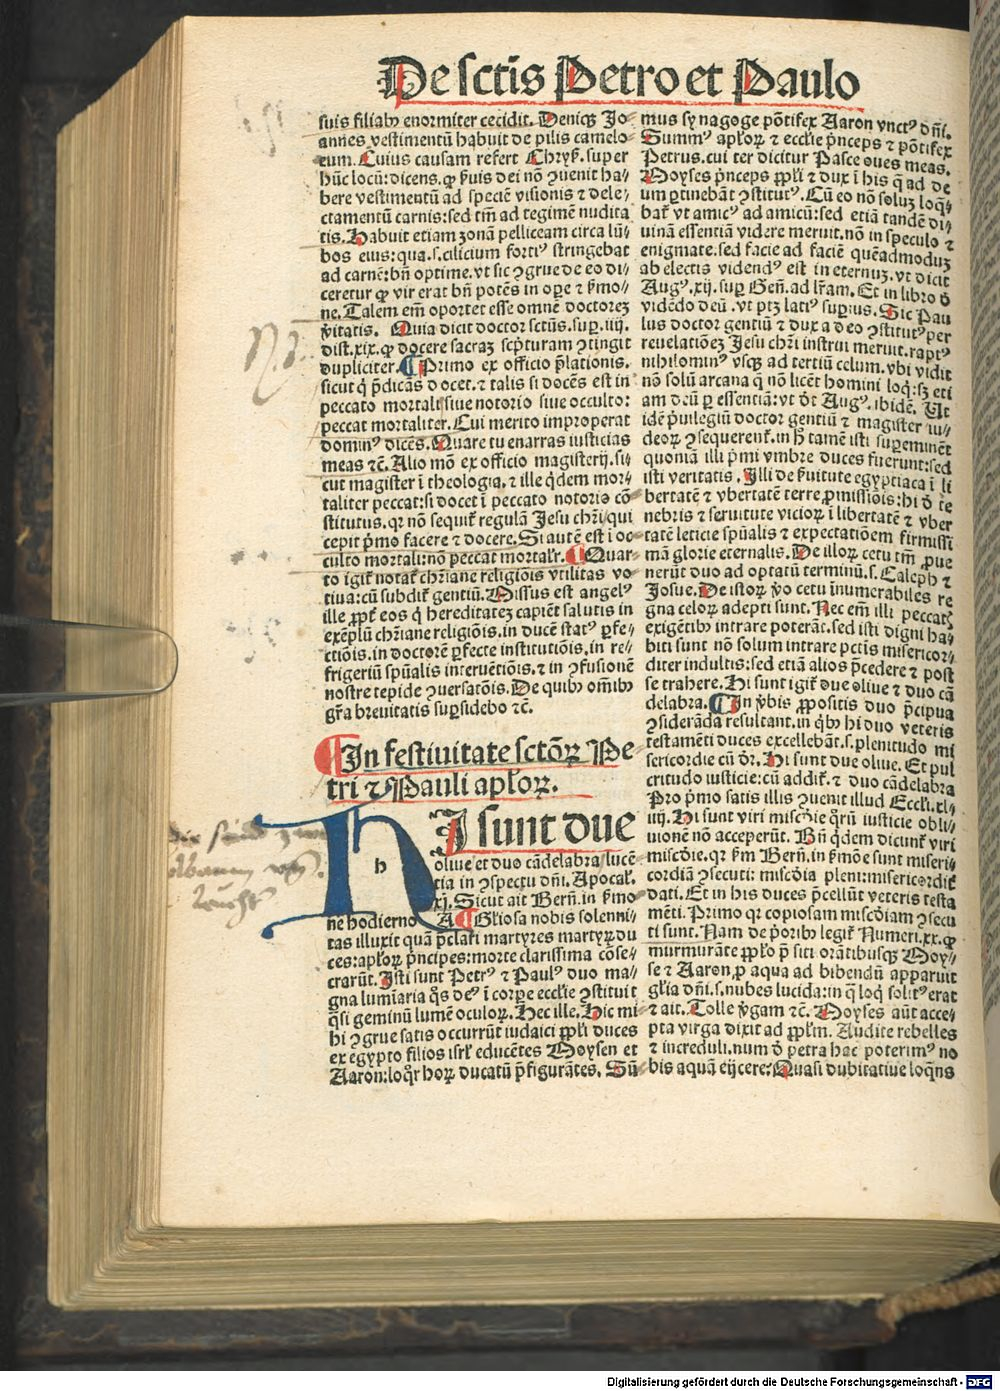 De sctis Petro et Paulo
suis filiabꝰ enormiter cecidit. Deniqꝫ Jo
annes vestimentū habuit de pilis camelo⸗
rum. Cuius causam refert Chrys. super
hūc locū: dicens. ꝙ ẜuis dei nō ꝯuenit ha⸗
bere vestimentū ad speciē visionis ⁊ dele⸗
ctamentū carnis: sed tm̄ ad tegimē nudita
tis. Habuit etiam zonā pelliceam circa lū⸗
bos eius: qua .s. cilicium fortiꝰ stringebat
ad carnē: bn̄ optime. vt sic ꝯgrue de eo di⸗
ceretur ꝙ vir erat bn̄ potēs in oꝑe ⁊ ẜmo⸗
ne. Talem em̄ oportet esse omnē doctorez
ṽitatis. Quia dicit doctor sctūs. suꝑ. iiij.
dist. xix. ꝙ docere sacraꝫ scp̄turam ꝯtingit
dupliciter. ¶ Primo ex officio p̄lationis.
sicut ꝗ p̄dicās docet. ⁊ talis si docēs est in
peccato mortali siue notorio siue occulto:
peccat mortaliter. Cui merito improperat
dominꝰ dicēs. Quare tu enarras iusticias
meas ⁊c̄. Alio mō ex officio magisterij. si⸗
cut magister ī theologia, ⁊ ille q̇dem mor⸗
taliter peccat: si docet ī peccato notorio cō
stitutus. qꝛ nō sequit᷑ regulā Jesu chr̄i qui
cepit p̄mo facere ⁊ docere. Si autē est ī oc⸗
culto mortali: nō peccat mortalr̄. ¶ Quar⸗
to igit᷑ notat᷑ chr̄iane religiōis vtilitas vo
tiua: cū subdit᷑ gentiū. Missus est angelꝰ
ille ꝓpt᷑ eos ꝗ hereditatez capiēt salutis in
exēplū chr̄iane religiōis. in ducē statꝰ ꝑfe⸗
ctiōis. in doctorē ꝑfecte institutiōis. in re⸗
frigeriū spūalis interuētiōis. ⁊ in ꝯfusionē
nostre tepide ꝯuersatōis. De quibꝰ om̄ibꝰ
gr̄a breuitatis suꝑsidebo ⁊c̄.
¶ In festiuitate sctōꝝ Pe
tri ⁊ Pauli apl̄oꝝ.
HI sunt due
oliue et duo cādelabra lucē
tia in ꝯspectu dn̄i. Apocal̄.
xj. Sicut ait Bern̄. in ẜmo
ne hodierno A ¶ Gl̄iosa nobis solenni⸗
tas illuxit quā p̄clari martyres martyꝝ du
ces: apl̄oꝝ p̄ncipes: morte clarissima cōse⸗
crarūt. Isti sunt Petrꝰ ⁊ Paulꝰ duo ma⸗
gna lumīaria q̄s deꝰ ī corꝑe eccl̄ie ꝯstituit
q̄si geminū lumē oculoꝝ. Hec ille. Hic mi⸗
hi ꝯgrue satis occurrūt iudaici ppl̄i duces
ex egypto filios isrl̄ educētes Moysen et
Aaron: loq̄r hoꝝ ducatū p̄figurātes. Sū
mus synagoge pōtifex Aaron vnctꝰ dn̄i.
Summꝰ apl̄oꝝ ⁊ eccl̄ie p̄nceps ⁊ pōtifex
Petrus. cui ter dicitur Pasce oues meas.
Moyses p̄nceps ppl̄i ⁊ dux ī his q̄ ad de
um ꝑtinebāt ꝯstitutꝰ. Cū eo nō soluz loq̄⸗
bat᷑ vt amicꝰ ad amicū: sed etiā tandē di⸗
uinā essentiā videre meruit. nō in speculo ⁊
enigmate. sed facie ad faciē quēadmoduꝫ
ab electis videndꝰ est in eternuꝫ. vt dicit
Augꝰ. xij. suꝑ Gen̄. ad lr̄am. Et in libro ō
vidēdo deū. vt ptꝫ latiꝰ suꝑius. Sic Pau
lus doctor gentiū ⁊ dux a deo ꝯstitutꝰ per
reuelatiōez Jesu chr̄i instrui meruit. raptꝰ
nihilominꝰ vsqꝫ ad tertiū celum. vbi vidit
nō solū arcana q̄ nō licēt homini loq̄: sꝫ eti
am deū ꝑ essentiā: vt d̄t Augꝰ. ibidē. Ut
idē p̄uilegiū doctor gentiū ⁊ magister iu⸗
deoꝝ ꝯsequerent᷑. in hͦ tamē isti suꝑeminēt
quoniā illi p̄mi vmbre duces fuerunt: sed
isti veritatis. Illi de ẜuitute egyptiaca ī li
bertatē ⁊ vbertatē terre ꝓmissiōis: hi ō te
nebris ⁊ seruitute vicioꝝ ī libertatē ⁊ vber
tatē leticie spūalis ⁊ expectatiōem firmissi
mā glorie eternalis. De illoꝝ cetu tm̄ ꝑue
nerūt duo ad optatū terminū .s. Caleph ⁊
Josue. De istoꝝ ṽo cetu īnumerabiles re
gna celoꝝ adepti sunt. Nec em̄ illi peccat᷑
exigētibꝰ intrare poterāt. sed isti digni ha⸗
biti sunt nō solum intrare pctis misericor⸗
diter indultis: sed etiā alios p̄cedere ⁊ post
se trahere. Hi sunt igit᷑ due oliue ⁊ duo cā
delabra. ¶ In ṽbis ꝓpositis duo p̄cipua
ꝯsiderāda resultant. in q̇bꝰ hi duo veteris
testamēti duces excellebāt .s. plenitudo mi
sericordie cū dr̄. Hi sunt due oliue. Et pul
critudo iusticie: cū addit᷑. ⁊ duo cādelabra
Pro p̄mo satis illis ꝯuenit illud Eccl̄i. xl⸗
iiij. Hi sunt viri miscd̄ie q̄rū iusticie obli⸗
uionē nō acceperūt. Bn̄ q̇dem dicunt᷑ viri
miscd̄ie. qꝛ ẜm Bern̄. in ẜmōe sunt miseri⸗
cordiā ꝯsecuti: miscd̄ia pleni: misericordit᷑
dati. Et in his duces p̄cellūt veteris testa
mēti. Primo qꝛ copiosam miscd̄iam ꝯsecu
ti sunt. Nam de p̄oribꝰ legit᷑ Numeri. xx. ꝙ
murmurāte ppl̄o p̄ siti orātibusqꝫ Moy⸗
se ⁊ Aaron, ꝑ aqua ad bibendū apparuit
gl̄ia dn̄i .s. nubes lucida: in q̄ loq̄ solitꝰ erat
⁊ ait. Tolle ṽgam ⁊c̄. Moyses aūt acce⸗
pta virga dixit ad ppl̄m. Audite rebelles
⁊ increduli. num ō petra hac poterimꝰ no
bis aquā eijcere: Quasi dubitatiue loq̄ns
Digitalisierung gefördert durch die Deutsche Forschungsgemeinschaft - DFG